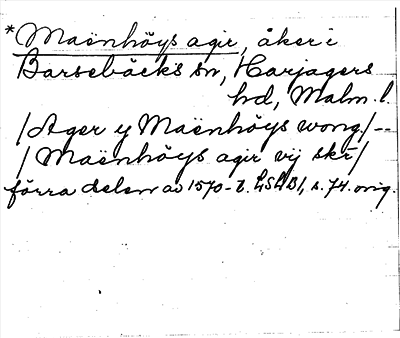 *Maënhöys agir, åker i
Barsebäcks sn, Harjagers
hd, Malm. l.
/Ager y Maënhöys wong/--
/Maënhöys agir vij skr̄/
förra delen av 1570-t. LSLB1, s. 74. orig.